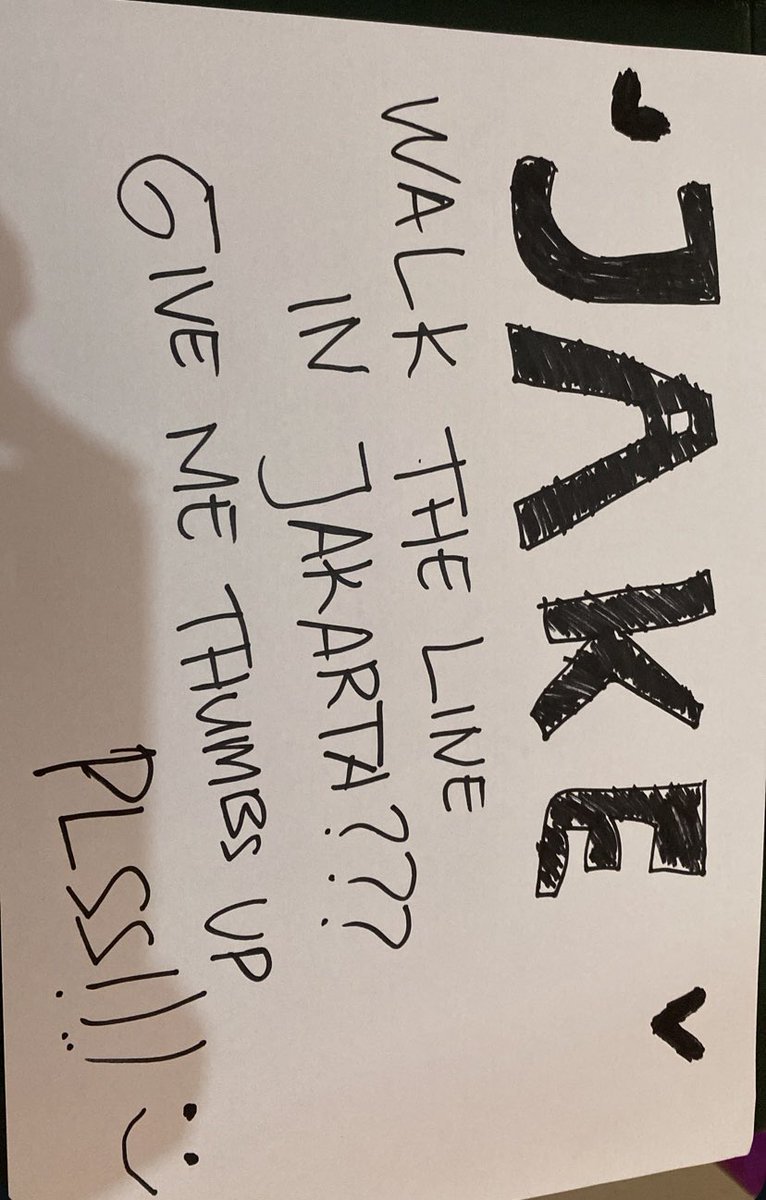 JAKE
WALK THE LINE
IN JAKARTA???
GIVE ME THUMBS UP
PLSS!!! :)